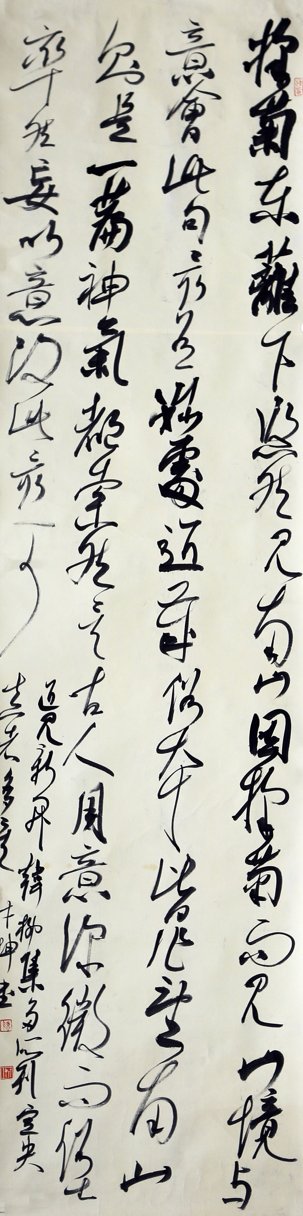 採菊東籬下悠然見南山因採菊而見山境与
意會此句最是妙處近歲俗本皆作望南山
則是一篇神氣都索然矣古人用意深微而俗士
率然妄以意改此最可
近見新開韓柳集多所刊定失
真者多矣